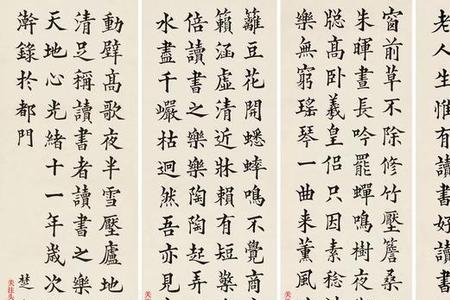 老人生惟有讀書好讀
窗前草不除修竹壓簷桑
朱暉晝長吟罷蟬鳴樹夜
聡高卧羲皇侣只因素稔
樂無窮瑤琴一曲来薰風
籬豆花開蟋蟀鳴不覺商
籟涵虛清近牀賴有短檠
倍讀書之樂樂陶陶起弄
水盡千巖枯迥然吾亦見
動壁高歌夜半雪壓廬地
清足稱讀書者讀書之樂
天地心光緒十一年歲次
澣錄於都門 楚